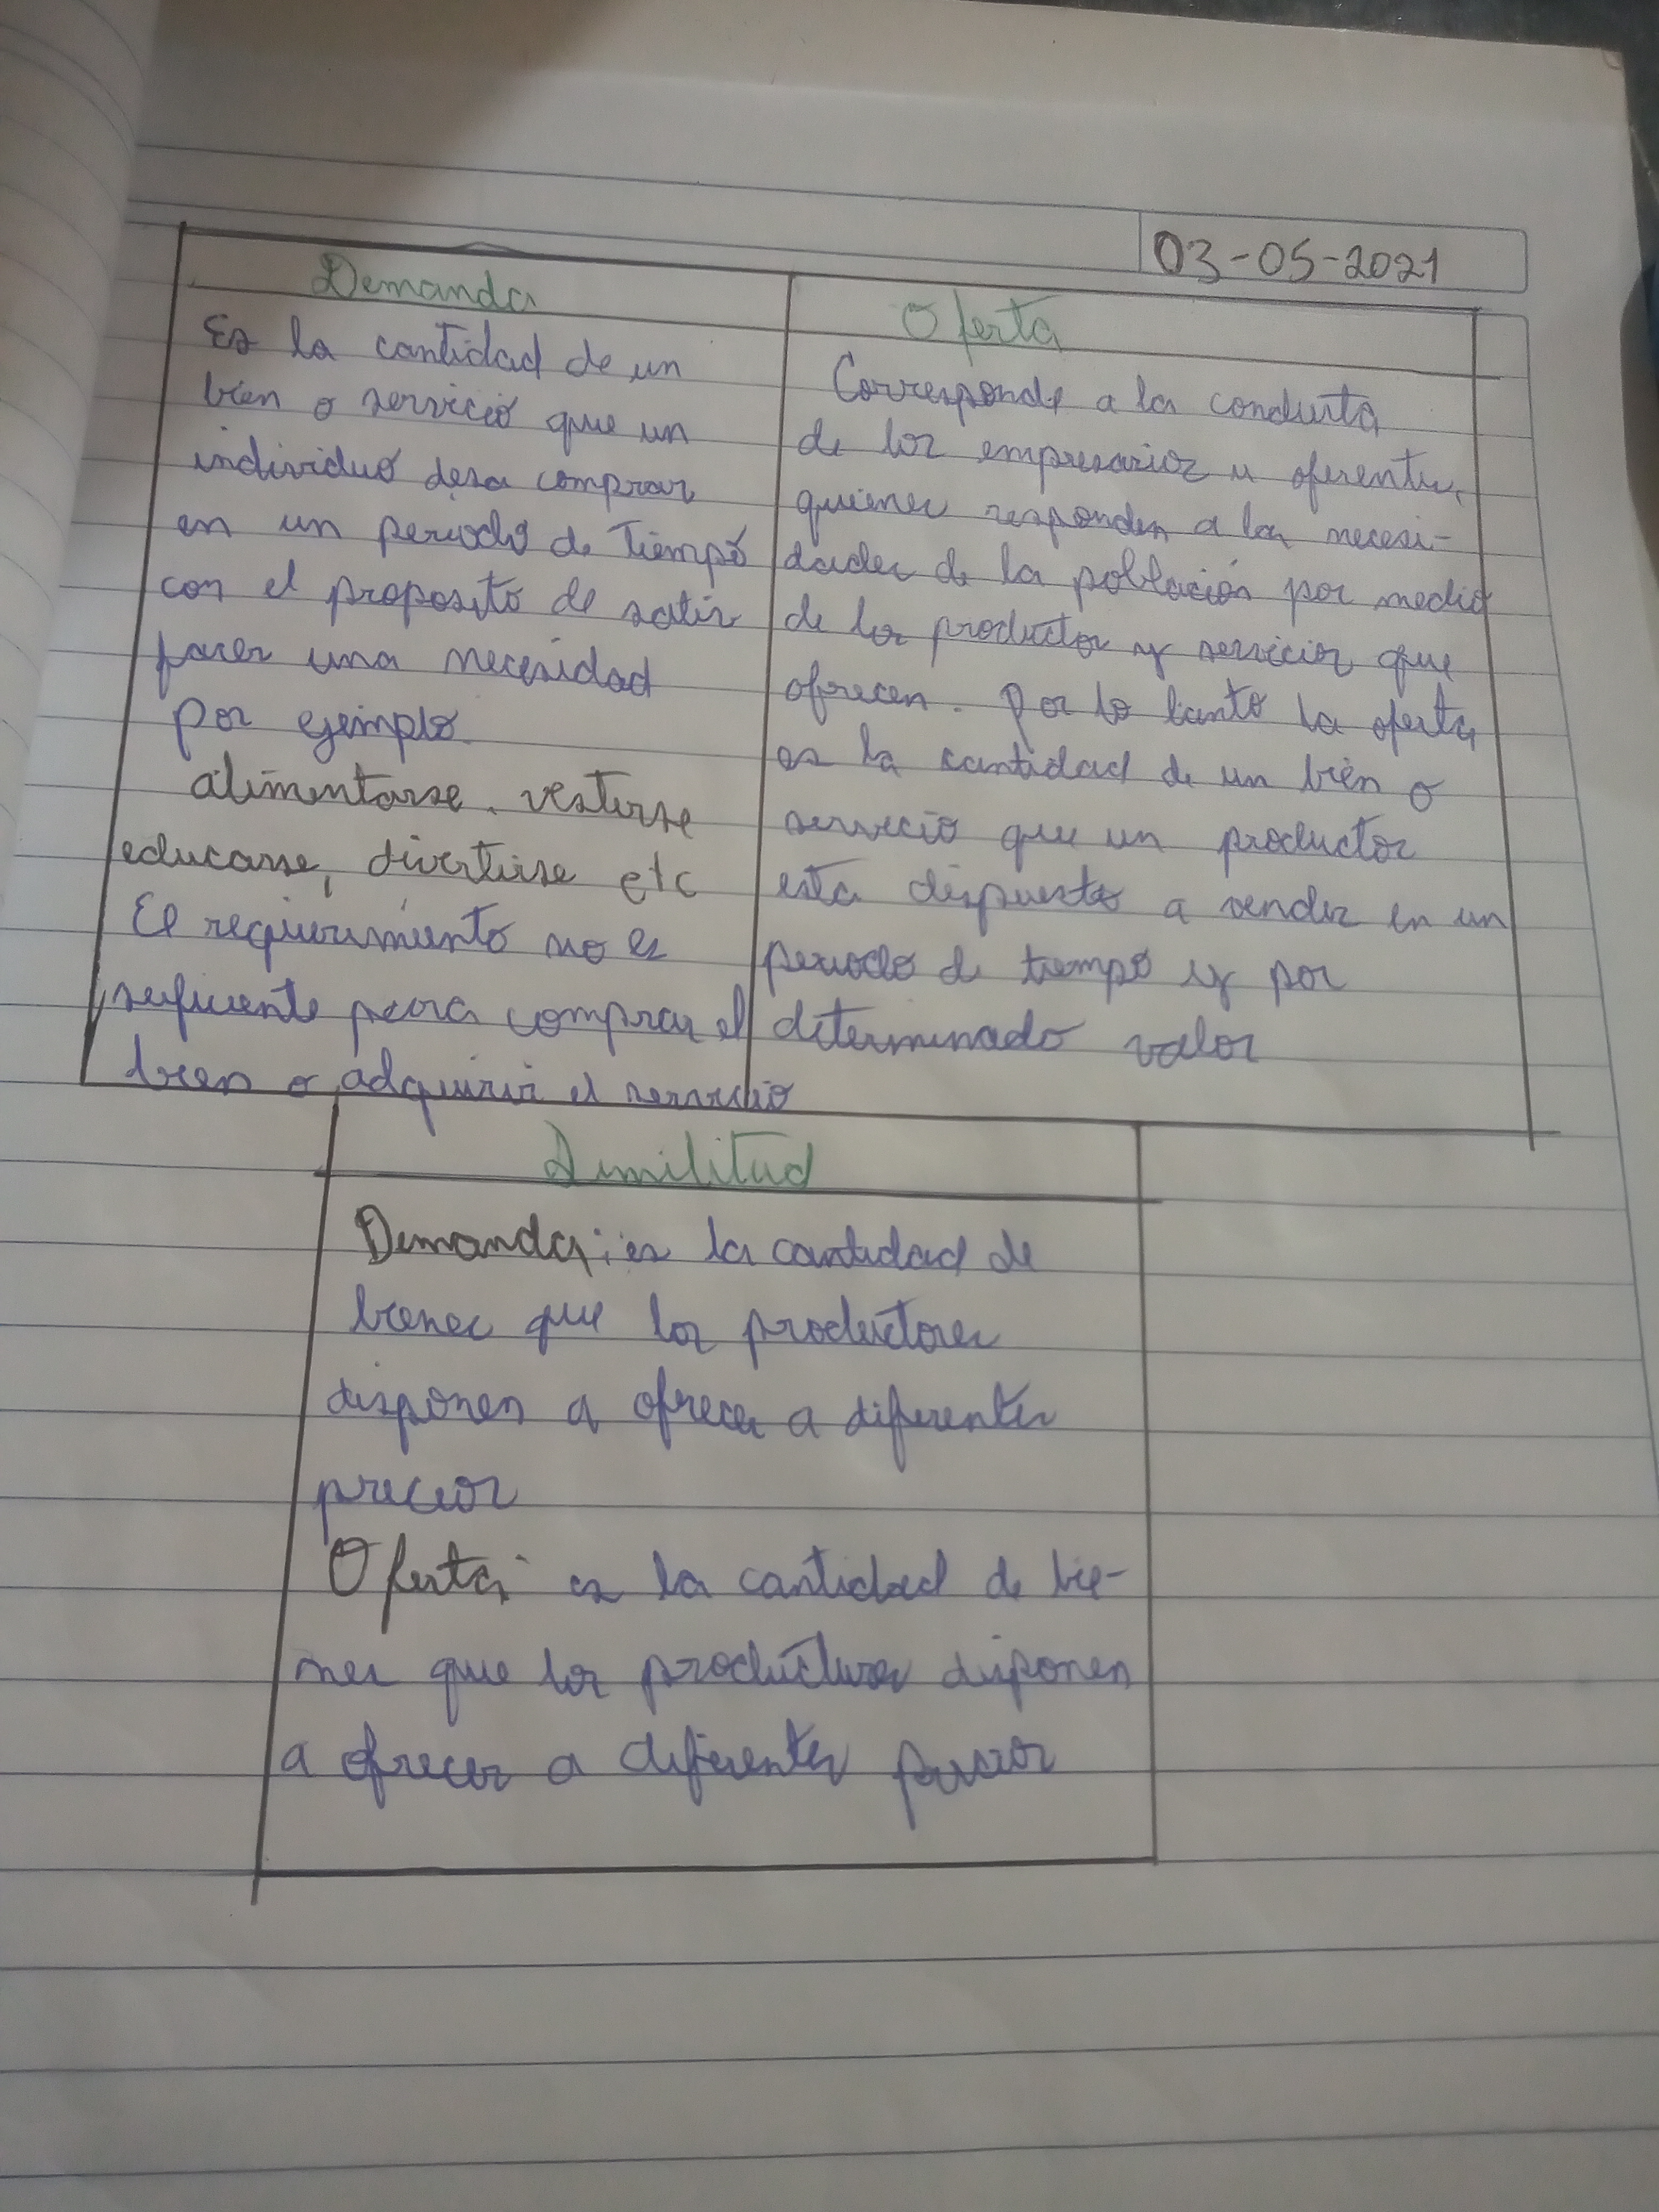 03-05-2021
Demanda
Es la cantidad de un
bien o servicio que un
individuo desa comprar
en un periodo de tiempo
con el proposito de satis
facer una necesidad
por ejemplo
alimentarse, vestirse
educarse, divertirse etc
El requirimiento no es
suficiente para comprar el
bien o adquirir el servicio
Oferta
Corresponde a la conducta
de los empresarios u oferentes,
quienes responden a las necesi-
dades de la población por medio
de los productos y servicios que
ofrecen. Por lo tanto la oferta
es la cantidad de un bien o
servicio que un productor
esta dispuesto a vender en un
periodo de tiempo y por
determinado valor
Similitud
Demanda: es la cantidad de
bienes que los productores
disponen a ofrecer a diferentes
precios
Oferta: es la cantidad de bie-
nes que los productores disponen
a ofrecer a diferentes precios